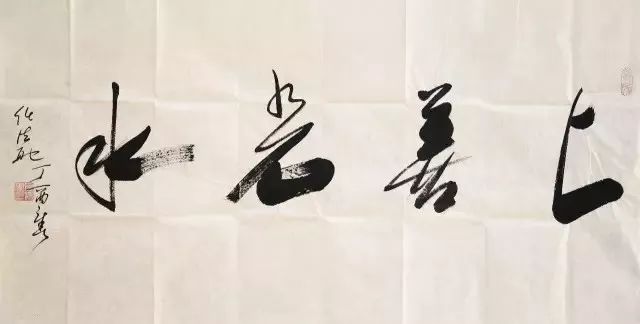 上善若水
丁酉